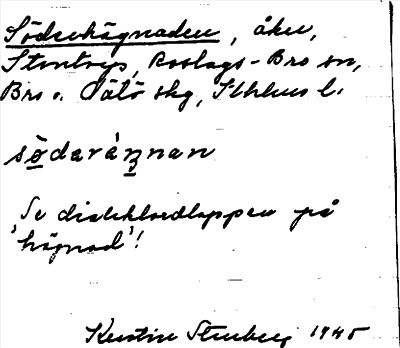 Söderhägnaden, åker,
Storstorp, Roslags-Bro sn,
Bro o. Vätö skg, Sthlms l.
södaránnan
Se dialektordlappen på
'hägnad'!
Kerstin Stenberg 1945